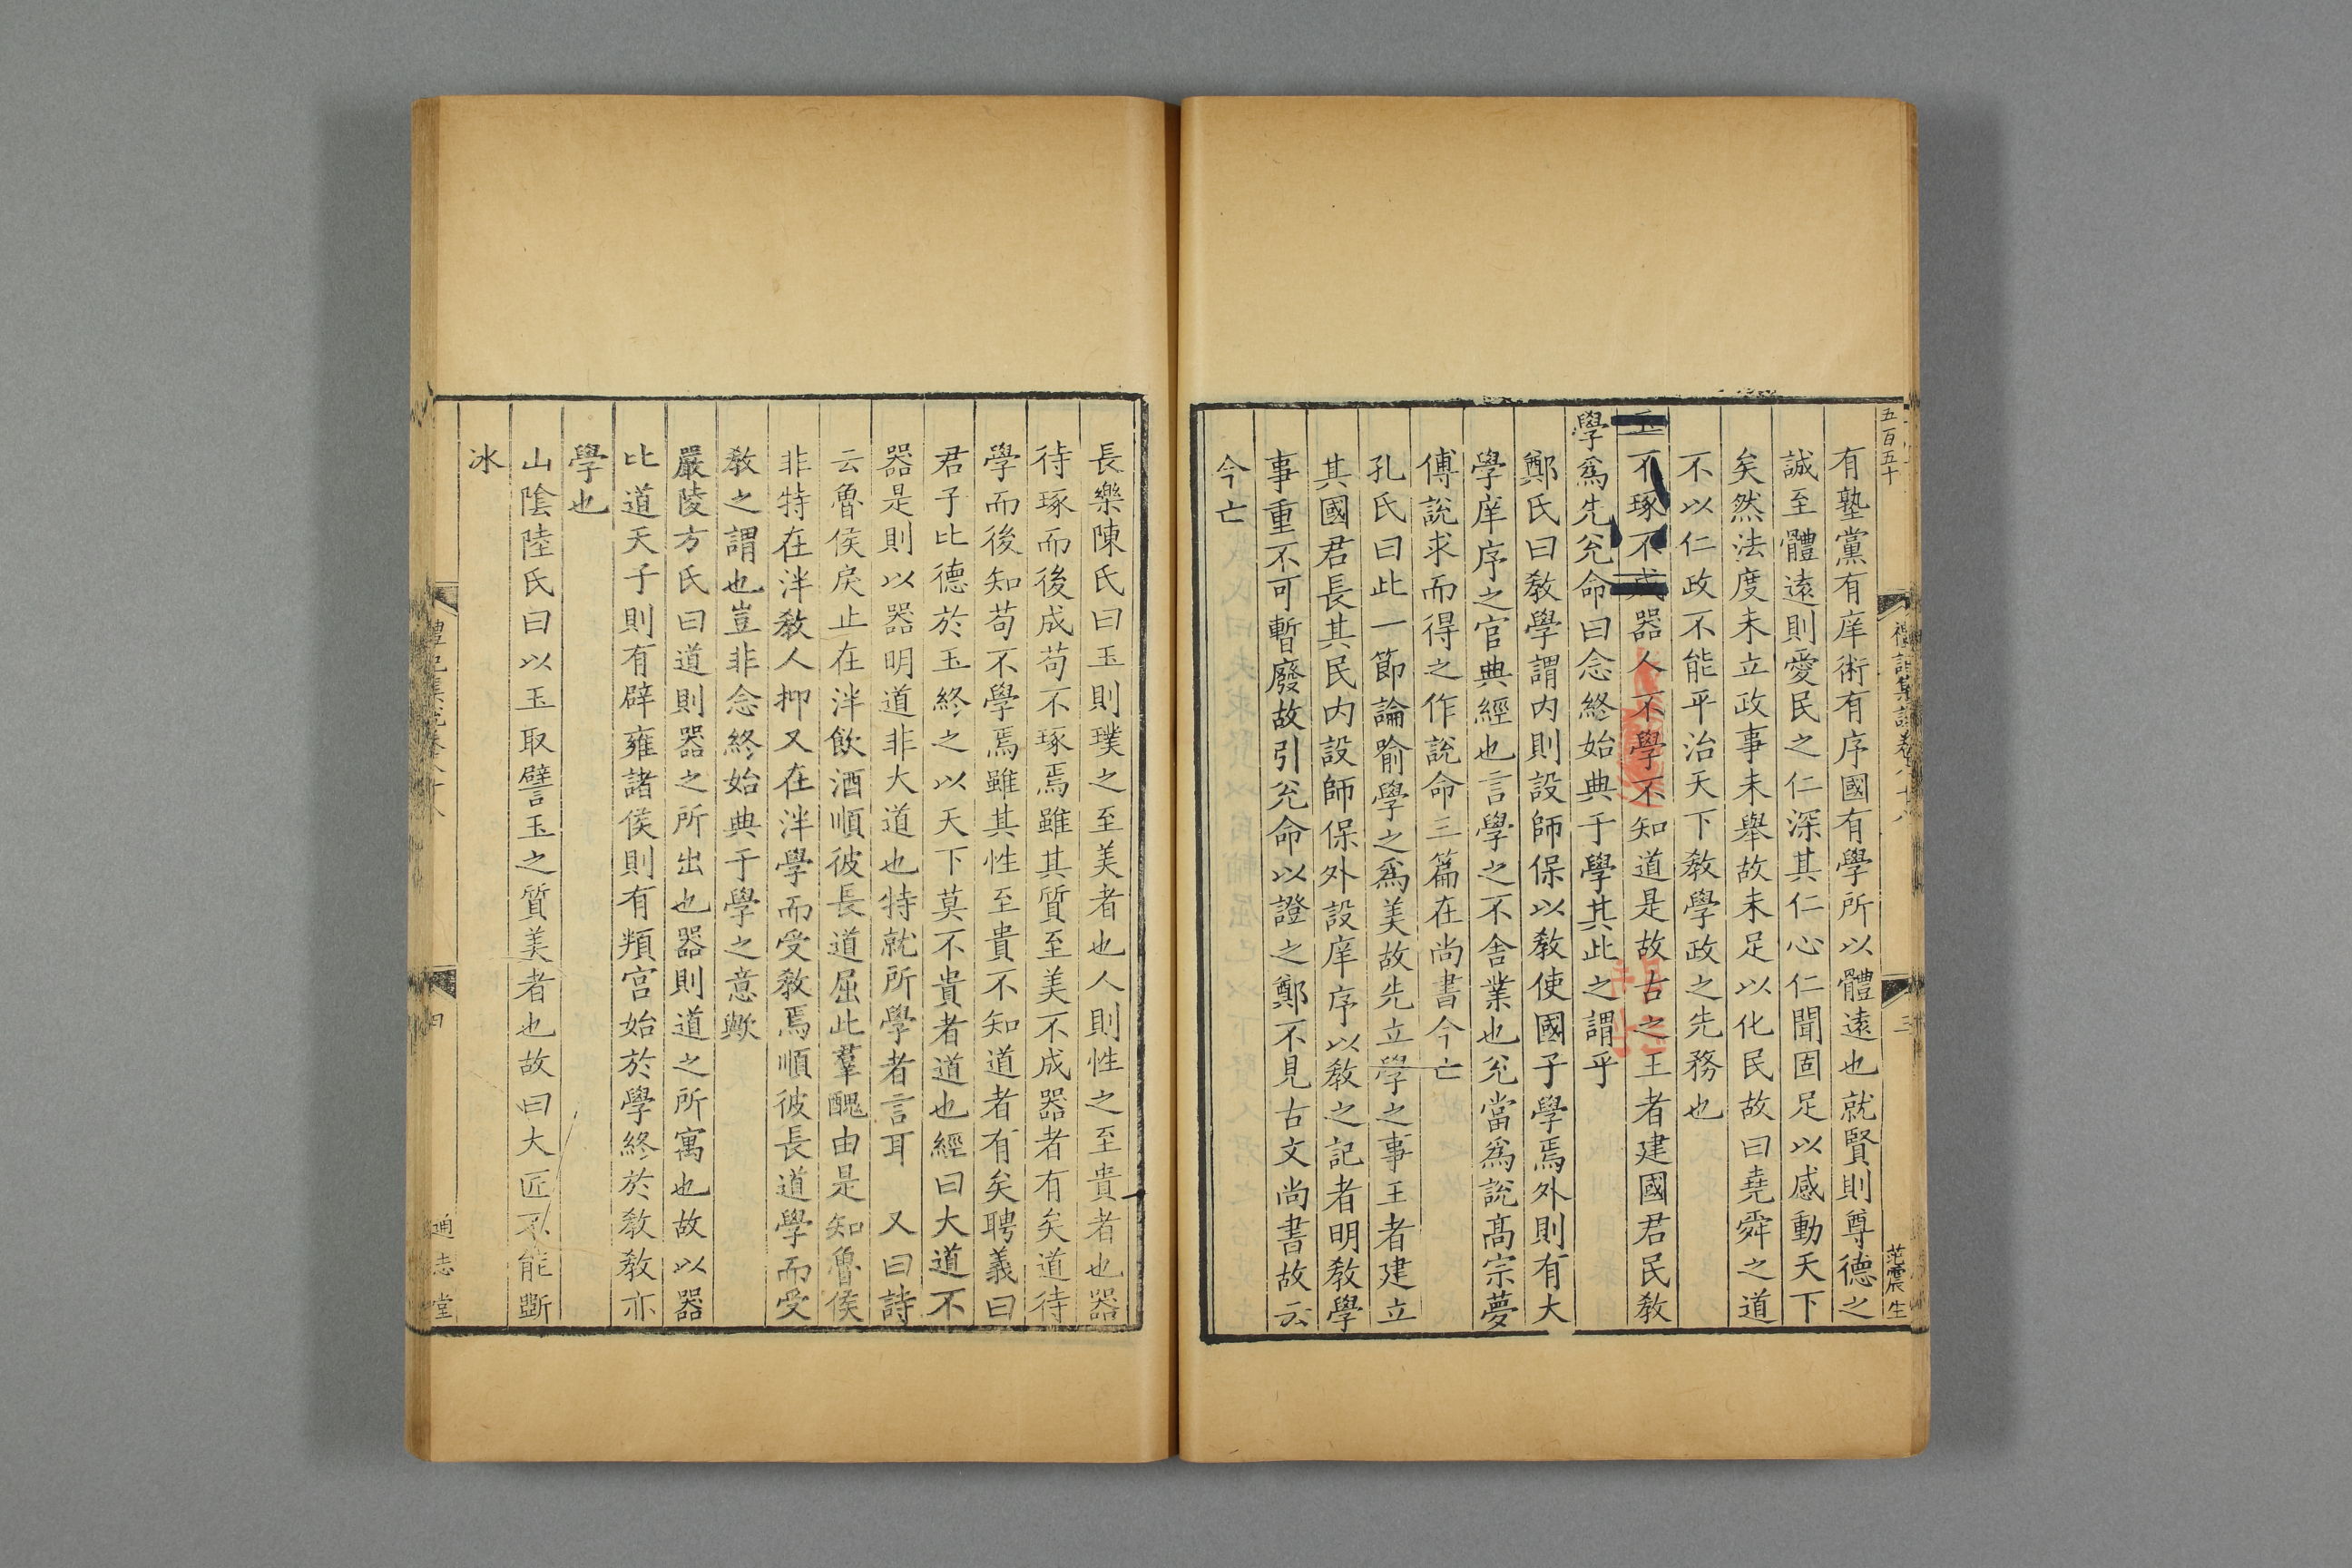 五百五十
禮記集說卷八十八
三
范震生
有塾黨有庠術有序國有學所以體遠也就賢則尊德之
誠至體遠則愛民之仁深其仁心仁聞固足以感動天下
矣然法度未立政事未舉故未足以化民故曰堯舜之道
不以仁政不能平治天下敎學政之先務也
玉不琢不成器人不學不知道是故古之王者建國君民敎
學爲先兊命曰念終始典于學其此之謂乎
鄭氏曰敎學謂内則設師保以敎使國子學焉外則有大
學庠序之官典經也言學之不舍業也兊當爲說髙宗夢
傅說求而得之作說命三篇在尚書今亡
孔氏曰此一節論喻學之爲美故先立學之事王者建立
其國君長其民内設師保外設庠序以敎之記者明敎學
事重不可暫廢故引兊命以證之鄭不見古文尚書故云
今亡
長樂陳氏曰玉則璞之至美者也人則性之至貴者也器
待琢而後成苟不琢焉雖其質至美不成器者有矣道待
學而後知苟不學焉雖其性至貴不知道者有矣聘義曰
君子比德於玉終之以天下莫不貴者道也經曰大道不
器是則以器明道非大道也特就所學者言耳　又曰詩
云魯侯戾止在泮飲酒順彼長道屈此羣醜由是知魯侯
非特在泮敎人抑又在泮學而受敎焉順彼長道學而受
敎之謂也豈非念終始典于學之意歟
嚴陵方氏曰道則器之所出也器則道之所寓也故以器
比道天子則有辟雍諸侯則有頖宫始於學終於敎敎亦
學也
山陰陸氏曰以玉取譬玉之質美者也故曰大匠不能斲
冰
禮記集說卷八十八
四
通志堂